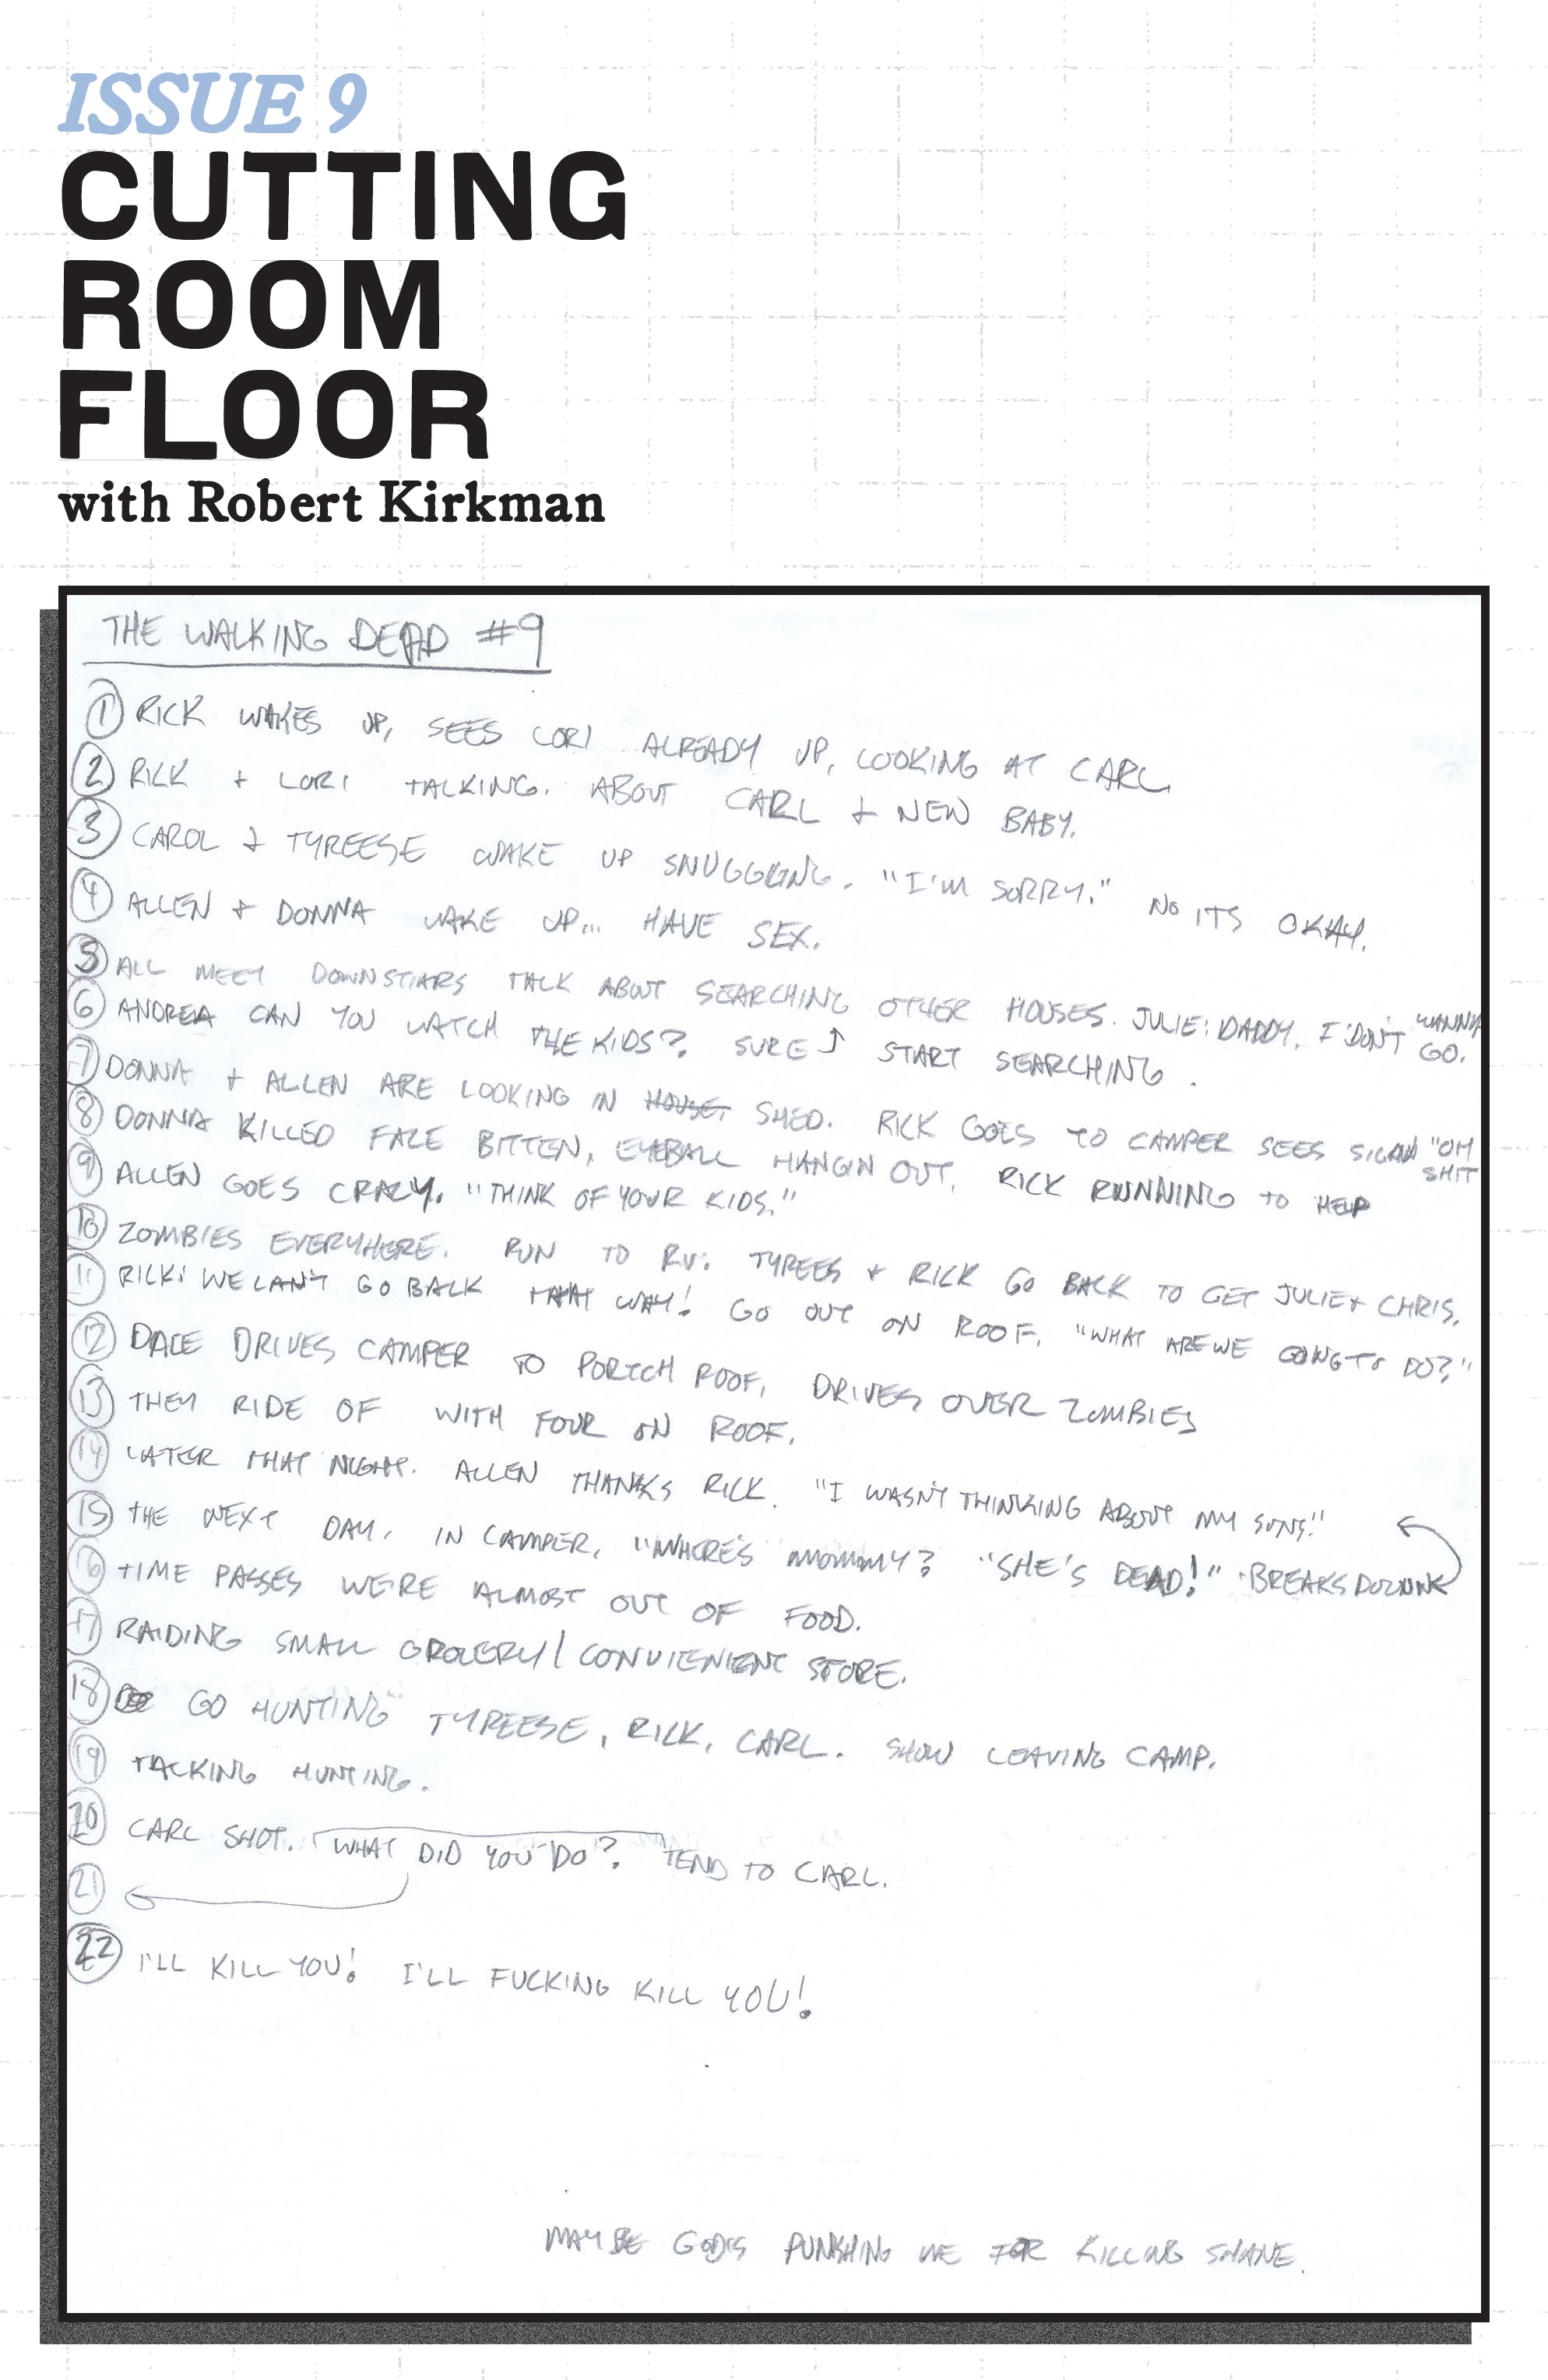 ISSUE 9
CUTTING
ROOM
FLOOR
with Robert Kirkman
THE WALKING DEAD #9
1 RICK WAKES UP, SEES LORI ALREADY UP, LOOKING AT CARL
2 RICK + LORI TALKING. ABOUT CARL + NEW BABY.
3 CAROL & TYREESE WAKE UP SNUGGLING. "I'M SORRY." NO ITS OKAY.
4 ALLEN + DONNA WAKE UP... HAVE SEX.
5 ALL MEET DOWNSTIARS TALK ABOUT SEARCHING OTHER HOUSES. JULIE: DADDY, I DON'T WANNA GO.
6 ANDREA CAN YOU WATCH THE KIDS? SURE START SEARCHING.
7 DONNA + ALLEN ARE LOOKING IN SHED. RICK GOES TO CAMPER SEES SIGN "OH SHIT
8 DONNA KILLED FACE BITTEN, EYEBALL HANGIN OUT. RICK RUNNING TO HELP
9 ALLEN GOES CRAZY. "THINK OF YOUR KIDS."
10 ZOMBIES EVERYHERE. RUN TO RV. TYREES + RICK GO BACK TO GET JULIE + CHRIS.
11 RICK: WE CAN'T GO BACK THAT WAY! GO OUT ON ROOF. "WHAT ARE WE GOING TO DO?"
12 DALE DRIVES CAMPER TO PORTCH ROOF, DRIVES OVER ZOMBIES
13 THEY RIDE OF WITH FOUR ON ROOF.
14 LATER THAT NIGHT. ALLEN THANKS RICK. "I WASN'T THINKING ABOUT MY SONS."
15 THE NEXT DAY. IN CAMPER, "WHERE'S MOMMY? "SHE'S DEAD!" BREAKS DOWN
16 TIME PASSES WE'RE ALMOST OUT OF FOOD.
17 RAIDING SMALL GROCERY/CONVIENIENT STORE.
18 GO HUNTING TYREESE, RICK, CARL. SHOW LEAVING CAMP.
19 TACKING HUNTING.
20 CARL SHOT. WHAT DID YOU DO?. TEND TO CARL.
21
22 I'LL KILL YOU! I'LL FUCKING KILL YOU!
MAYBE GOD IS PUNISHING ME FOR KILLING SHANE.